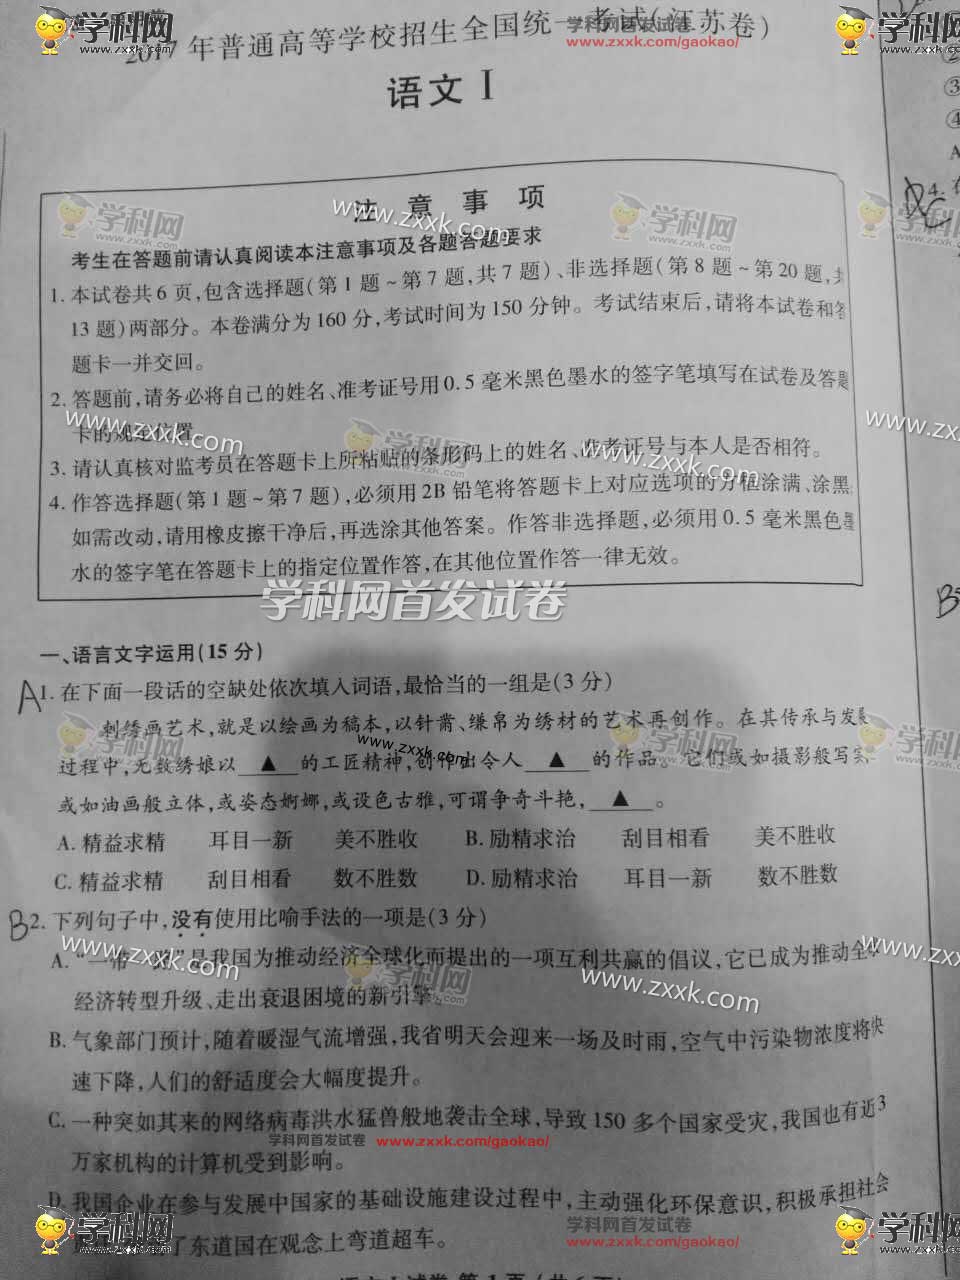 2017年普通高等学校招生全国统一考试(江苏卷)
语文 I
注意事项
考生在答题前请认真阅读本注意事项及各题答题要求
1. 本试卷共6页,包含选择题(第1题~第7题,共7题)、非选择题(第8题~第20题,共
13题)两部分。本卷满分为160分,考试时间为150分钟。考试结束后,请将本试卷和答
题卡一并交回。
2. 答题前,请务必将自己的姓名、准考证号用0.5毫米黑色墨水的签字笔填写在试卷及答题
卡的规定位置
3. 请认真核对监考员在答题卡上所粘贴的条形码上的姓名、准考证号与本人是否相符。
4. 作答选择题(第1题~第7题),必须用2B铅笔将答题卡上对应选项的方框涂满、涂黑
如需改动,请用橡皮擦干净后,再选涂其他答案。作答非选择题,必须用0.5毫米黑色墨
水的签字笔在答题卡上的指定位置作答,在其他位置作答一律无效。
学科网首发试卷
一、语言文字运用(15分)
A 1. 在下面一段话的空缺处依次填入词语,最恰当的一组是(3分)
刺绣画艺术,就是以绘画为稿本,以针黹、缣帛为绣材的艺术再创作。在其传承与发展
过程中,无数绣娘以 ▲ 的工匠精神,创作出令人 ▲ 的作品。它们或如摄影般写实
或如油画般立体,或姿态婀娜,或设色古雅,可谓争奇斗艳, ▲ 。
A. 精益求精 耳目一新 美不胜收 B. 励精求治 刮目相看 美不胜收
C. 精益求精 刮目相看 数不胜数 D. 励精求治 耳目一新 数不胜数
B 2. 下列句子中,没有使用比喻手法的一项是(3分)
A. “一带一路”是我国为推动经济全球化而提出的一项互利共赢的倡议,它已成为推动全球
经济转型升级、走出衰退困境的新引擎。
B. 气象部门预计,随着暖湿气流增强,我省明天会迎来一场及时雨,空气中污染物浓度将快
速下降,人们的舒适度会大幅度提升。
C. 一种突如其来的网络病毒洪水猛兽般地袭击全球,导致150多个国家受灾,我国也有近3
万家机构的计算机受到影响。
学科网首发试卷 www.zxxk.com/gaokao/
D. 我国企业在参与发展中国家的基础设施建设过程中,主动强化环保意识,积极承担社会
了东道国在观念上弯道超车。
学科网首发试卷
www.zxxk.com/gaokao/